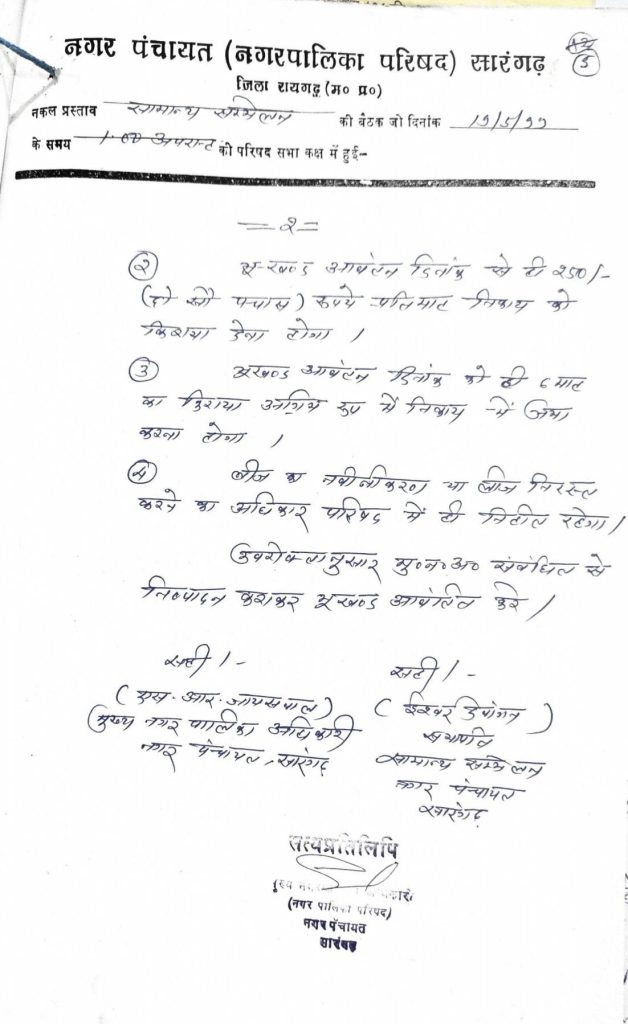 5
नगर पंचायत (नगरपालिका परिषद) सारंगढ़
जिला रायगढ़ (म० प्र०)
नकल प्रस्ताव सामान्य सम्मेलन की बैठक जो दिनांक 17/5/99
के समय 1.00 अपरान्ह की परिषद सभा कक्ष में हुई-
=२=
(२) भू-खण्ड आवंटन दिनांक से ही 250/-
(दो सौ पचास) रूपये प्रतिमाह निकाय को
किराया देना होगा।
(3) भूखण्ड आवंटन दिनांक को ही 6 माह
का किराया अग्रिम रूप में निकाय में जमा
करना होगा।
(4) लीज का नवीनीकरण या लीज निरस्त
करने का अधिकार परिषद में ही निहीत रहेगा।
उपरोक्तानुसार मु०न०अ० संबंधित से
निष्पादन कराकर भूखण्ड आवंटित करें।
सही/-
(एस.आर.जायसवाल)
मुख्य नगर पालिका अधिकारी
नगर पंचायत, सारंगढ़
सही/-
(ईश्वर देवांगन)
सभापति
सामान्य सम्मेलन
नगर पंचायत
सारंगढ़
सत्यप्रतिलिपि
(नगर पालिका परिषद)
नगर पंचायत
सारंगढ़